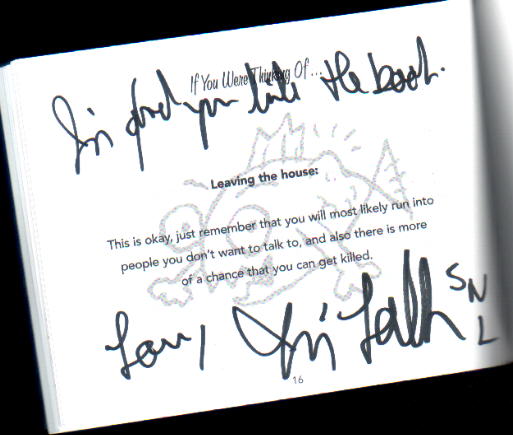 If You Were Thinking Of ...
I'm glad you like the book.
Leaving the house:
This is okay, just remember that you will most likely run into
people you don't want to talk to, and also there is more
of a chance that you can get killed.
Love, Jim Fallon SNL
16